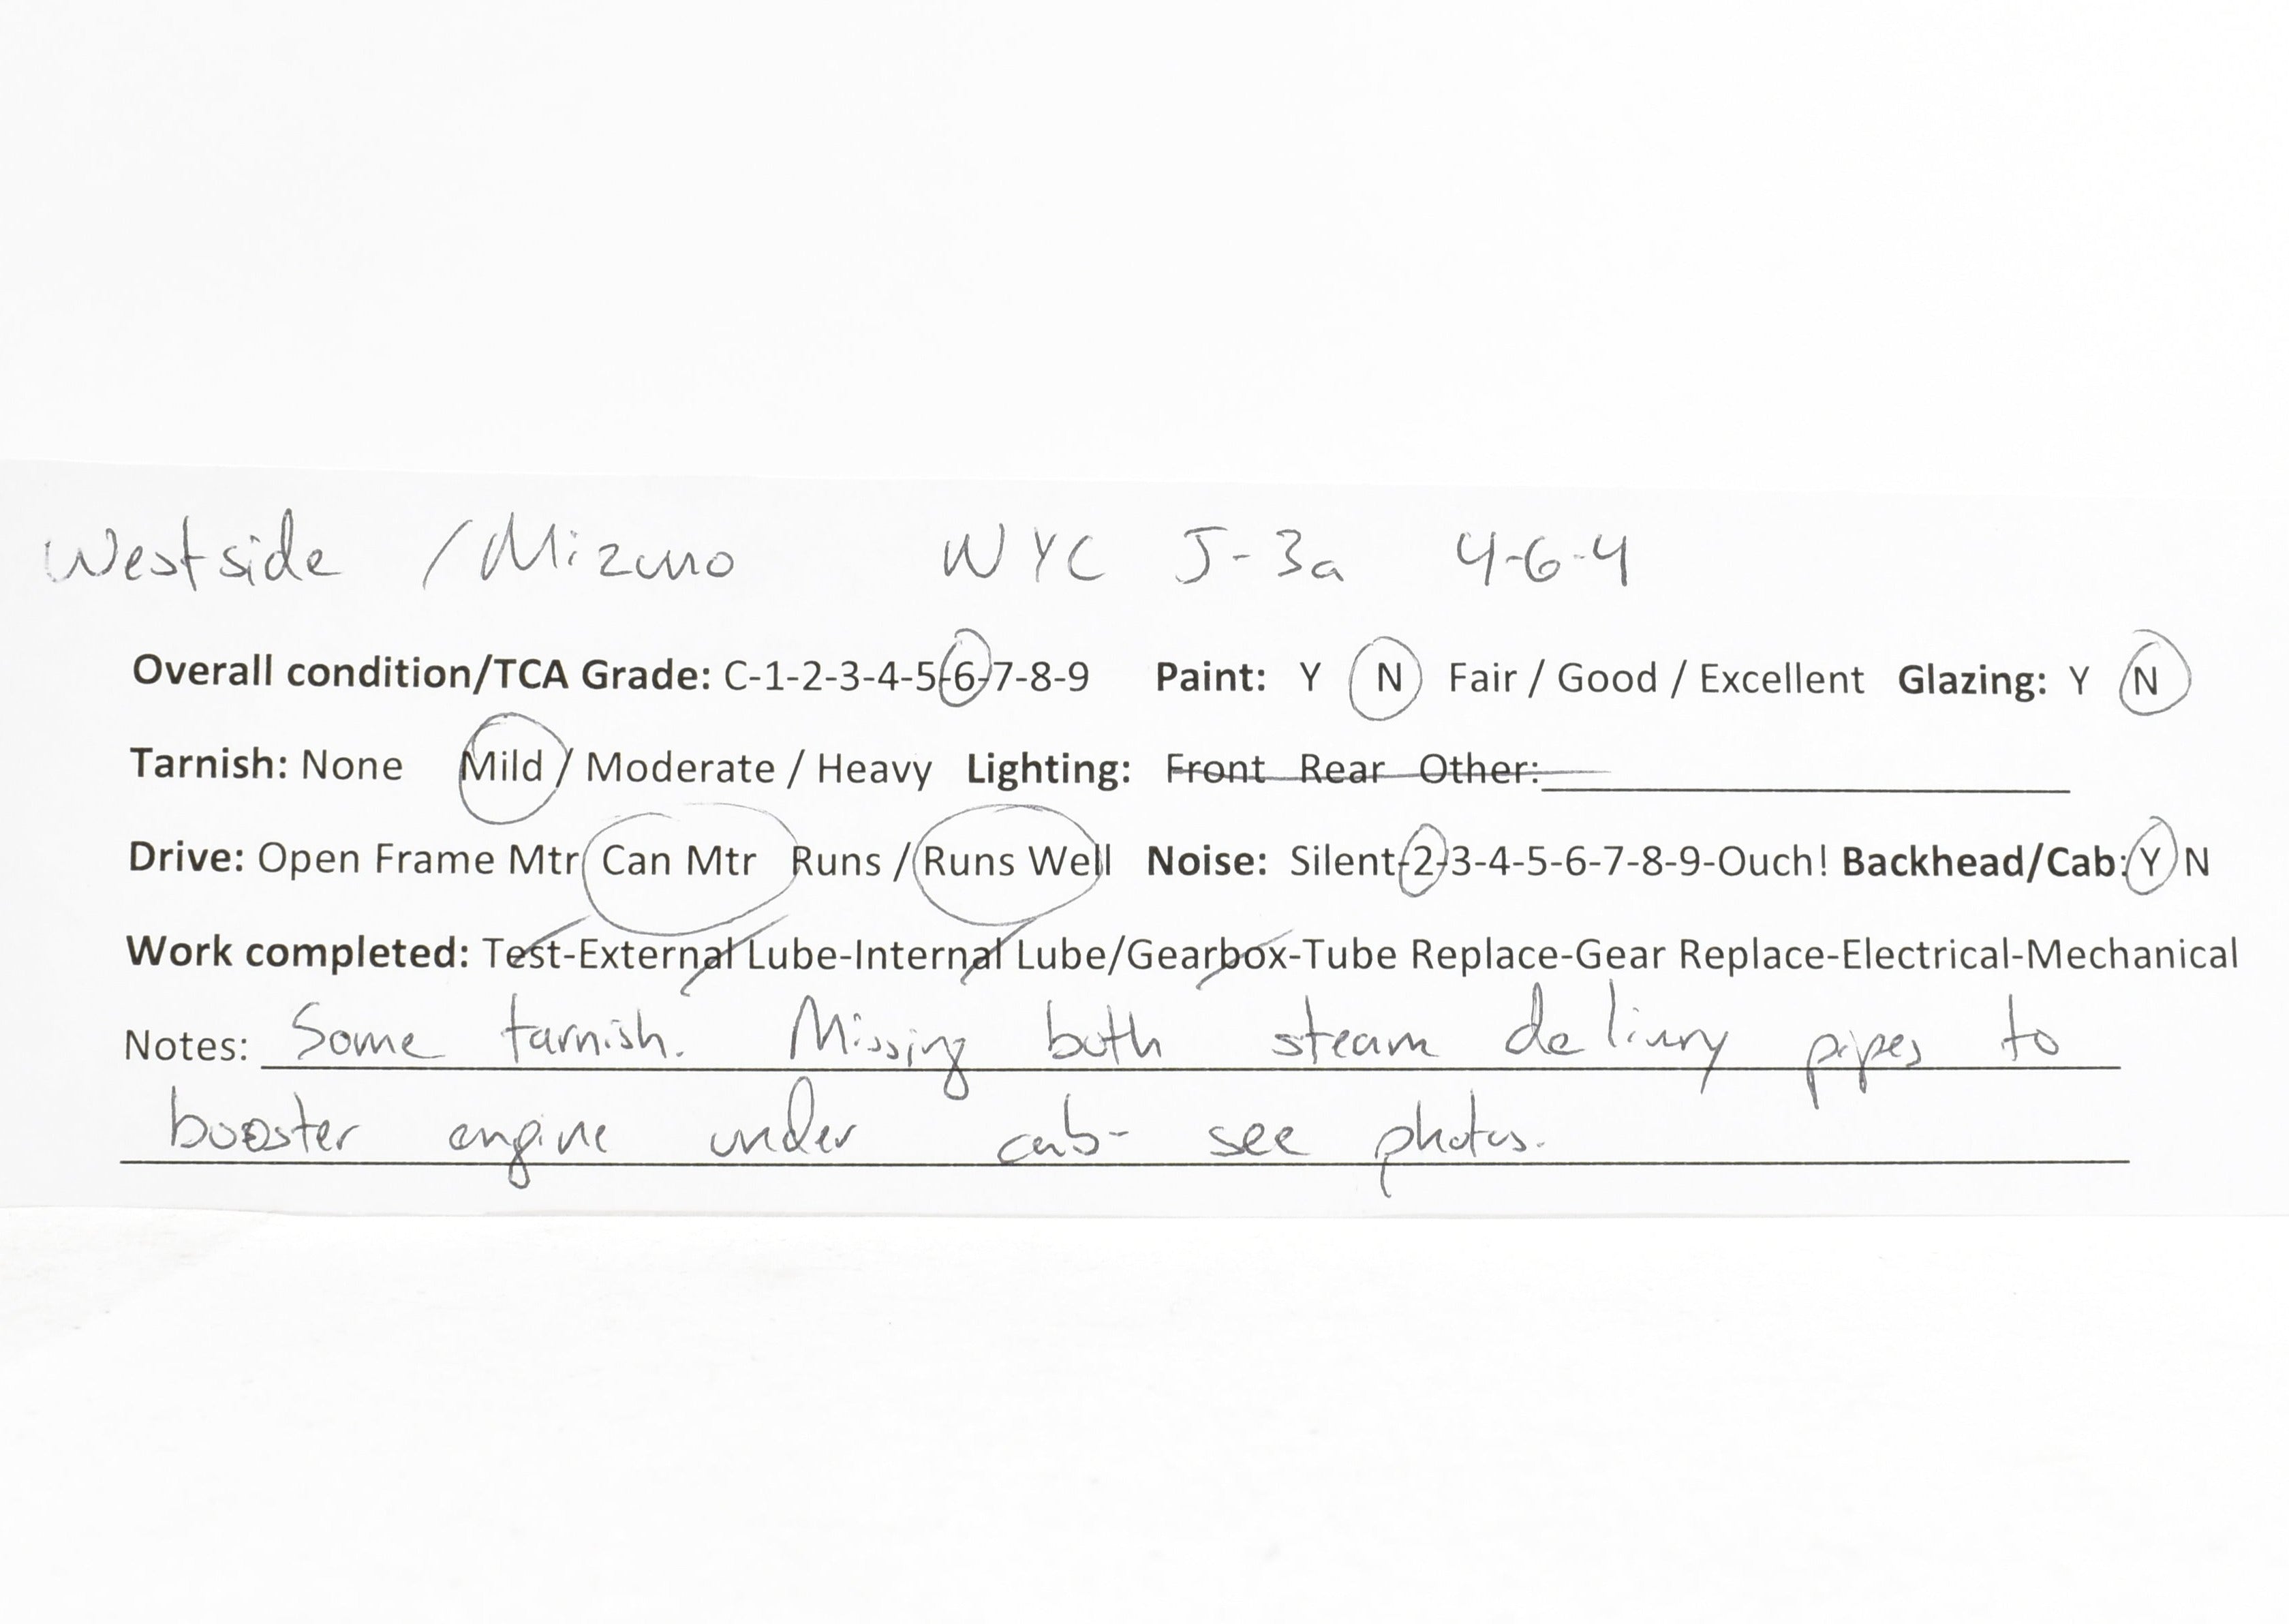 Westside / Mizuno NYC J-3a 4-6-4
Overall condition/TCA Grade: C-1-2-3-4-5-6-7-8-9 Paint: Y N Fair / Good / Excellent Glazing: Y N
Tarnish: None Mild / Moderate / Heavy Lighting: Front Rear Other:
Drive: Open Frame Mtr Can Mtr Runs / Runs Well Noise: Silent-2-3-4-5-6-7-8-9-Ouch! Backhead/Cab: Y N
Work completed: Test-External Lube-Internal Lube/Gearbox-Tube Replace-Gear Replace-Electrical-Mechanical
Notes: Some tarnish. Missing both steam delivry pipes to
booster engine under cab- see photos.